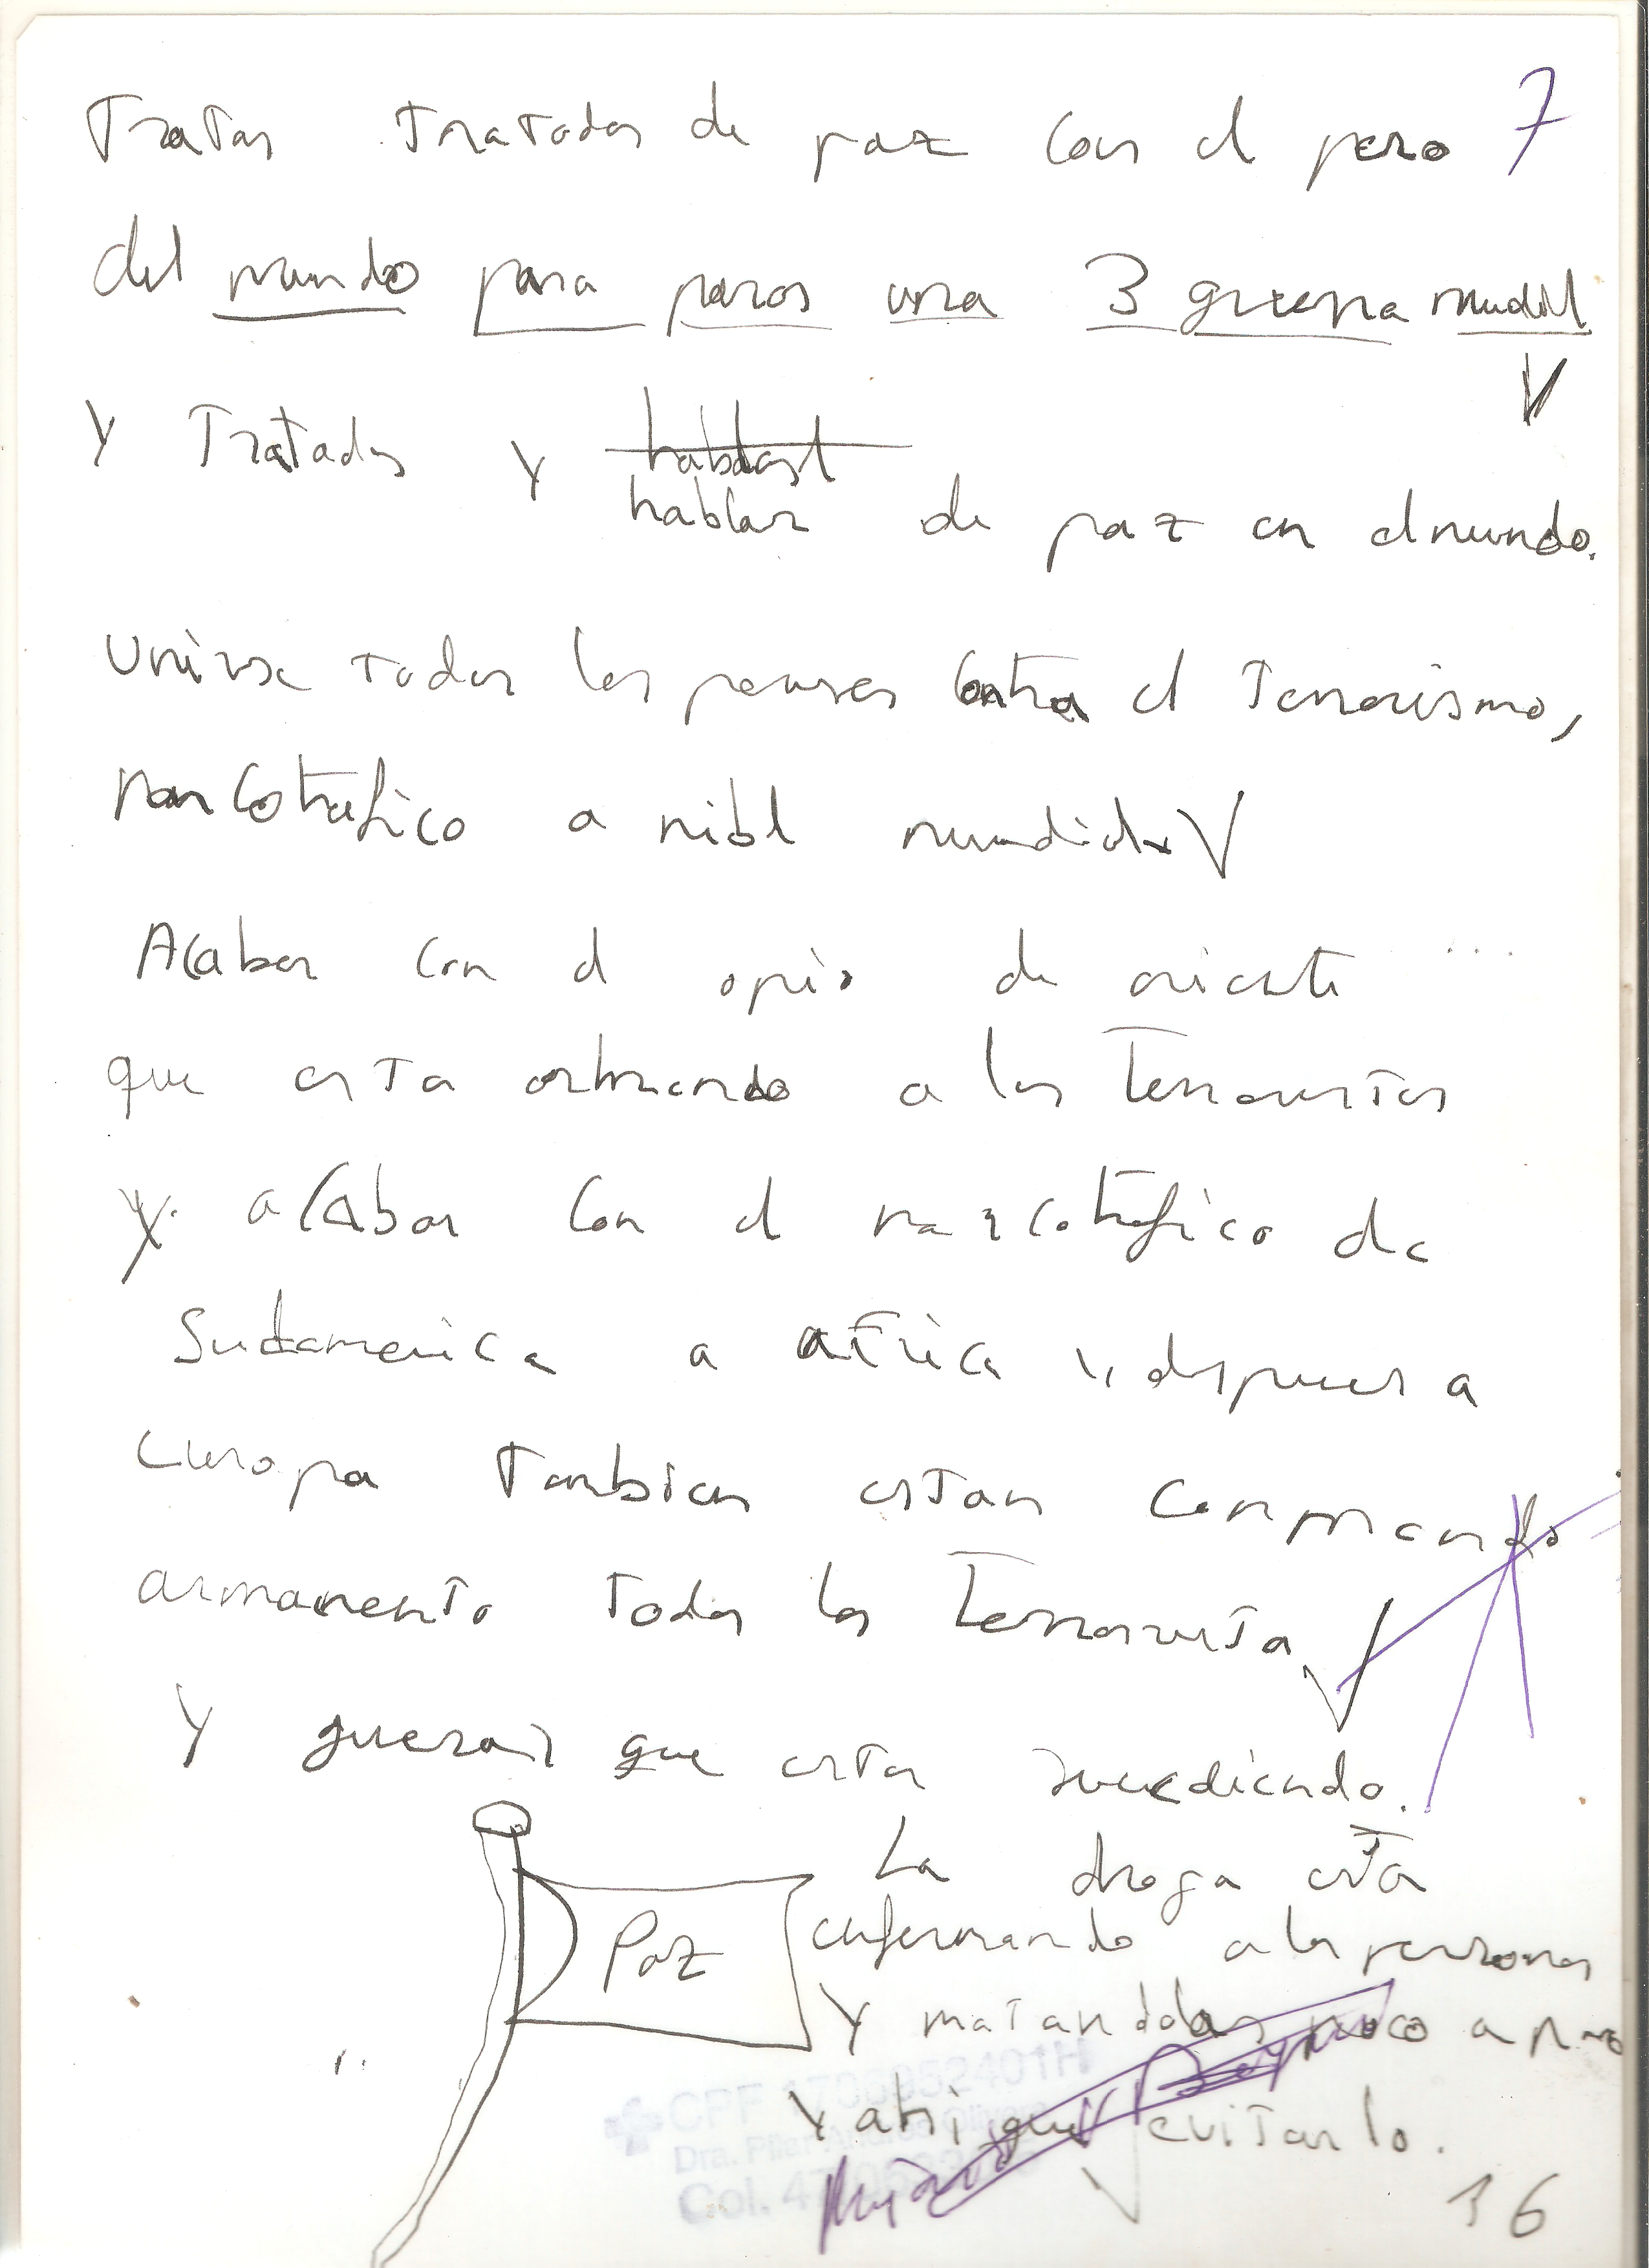 Tratar Tratados de paz con el pero 7
del mundo para paros una 3 guerra mudial
Y Tratados y hablar de paz en el mundo.
Unirse todos los paises contra el Terrorismo,
narcotrafico a nibel mundial
Acabar con el opio de oriente ...
que esta a los Terroristas
y acabar con el narcotrafico de
Sudamerica a africa y despues a
europa Tambien estan comprando
armamento Todos los Terrorista
Y guerras que esta sucediendo.
La droga esta
Paz
enfermando a las personas
Y matandolas poco a poco
Y ahi que evitarlo.
CPF 1708952401H
Dra. Pilar
Col. 47
16